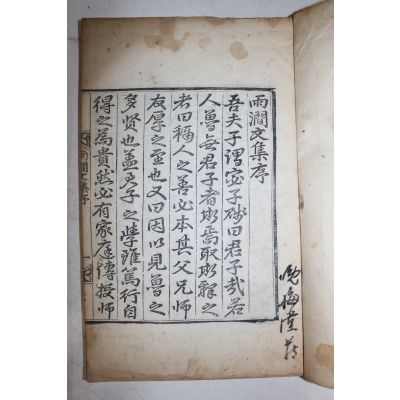 雨澗文集序
吾夫子謂宓子賤曰君子哉若
人魯無君子者斯焉取斯釋之
者曰稱人之善必本其父兄師
友厚之至也又曰因以見魯之
多賢也盖君子之學雖篤行自
得之為貴然必有家庭傳授師
雨澗文集序 一
堂藏